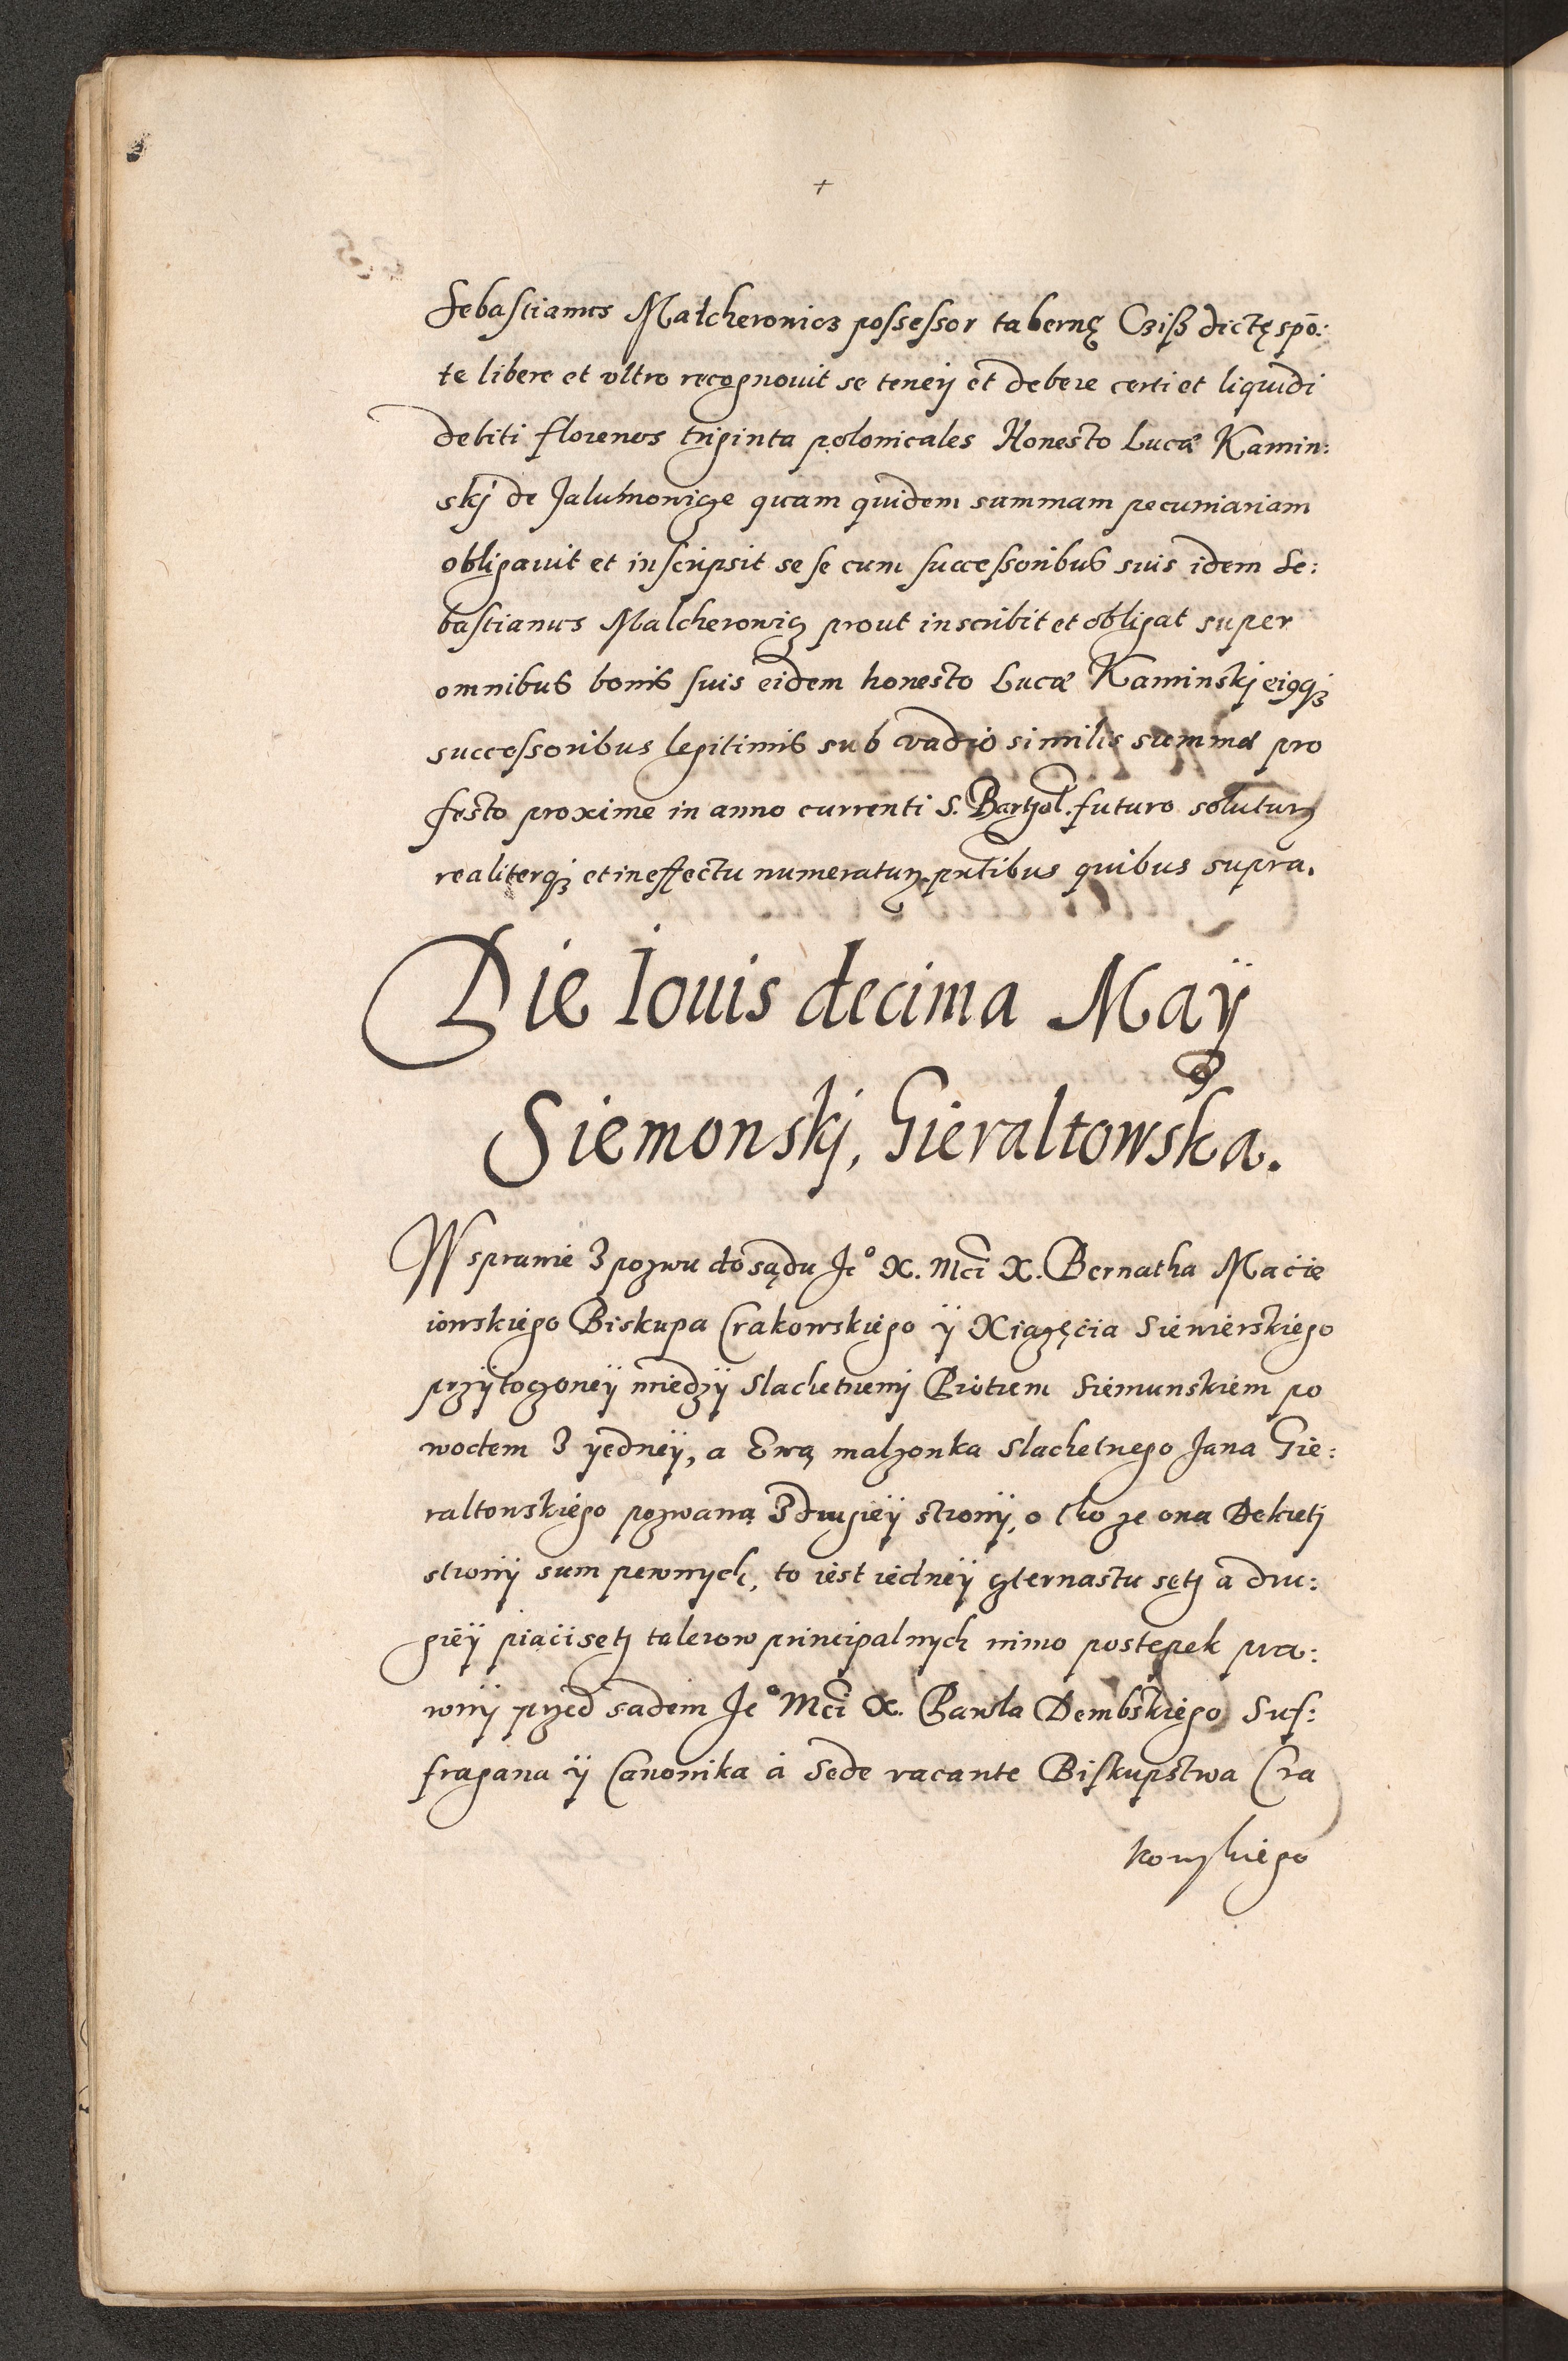 +
Sebastianus Malcheronicz possessor tabernę Cziß dictę spō:
te libere et vltro recognouit se tenerj et debere certi et liquidi
debiti florenos triginta polonicales Honesto Lucæ Kamin:
skj de Jaluhowicze quam quidem summam pecuniariam
obligauit et inscripsit se se cum successoribus suis idem Se:
bastianus Malcherowicz prout inscribit et obligat super
omnibus bonis suis eidem honesto Lucæ Kaminskj eiꝯqȝ
successoribus legitimis sub vadio similis summæ pro
festo proxime in anno currenti S. Barthol. futuro soluturꝫ
realiterqȝ et in effectu numeraturꝫ pñtibus quibus supra.
Die Iouis decima Maÿ
Siemonskj, Gieraltowska.
W sprawie z pozwu do sądu Jeº X. Mci X. Bernatha Macie
iowskiego Biskupa Crakowskiego ÿ Xiązęcia Siewierskiego
przÿtoczoneÿ miedzÿ slachetnem Piotrem Siemunskiem po
wodem z yedneÿ, a Ewą malzonka slachetnego Jana Gie:
raltowskiego pozwaną z drugieÿ stronÿ, o tho ze ona Dekretj
stronÿ sum pewnych, to iest iedneÿ czternastu sętj a dru:
gieÿ piąci sętj talerow principalnych mimo postępek pra:
wnÿ przed sądem Jeº Mci X. Pawla Dembskiego Suf:
fragana ÿ Canonika a Sede vacante Biskupstwa Cra
kowskiego